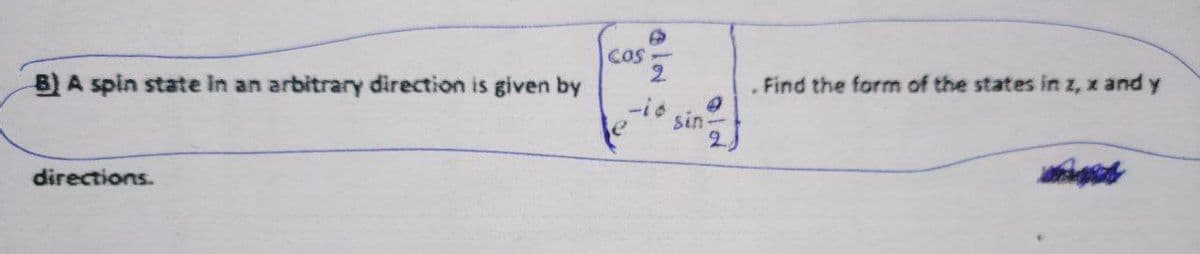 B) A spin state in an arbitrary direction is given by (cos θ/2  e^-iφ sin θ/2). Find the form of the states in z, x and y
directions.